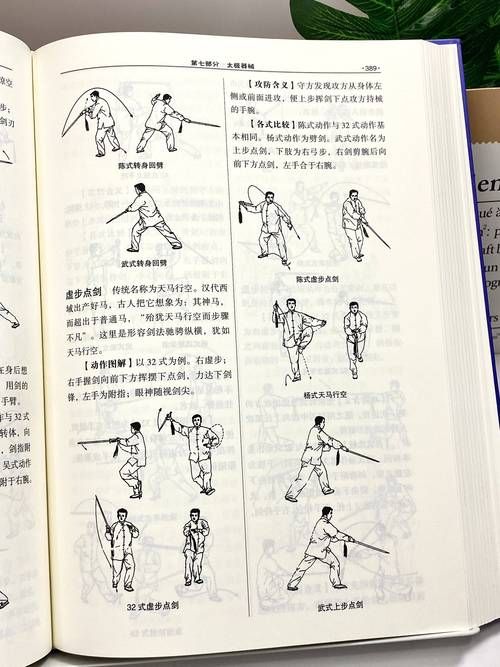 第七部分 太极器械
·389·
陈式转身回劈
武式转身回劈
虚步点剑 传统名称为天马行空。汉代西
域出产好马，古人把它想象为；其神马，
而超出于普通马，“殆犹天马行空而步骤
不凡”。这里是形容剑法驰骋纵横，犹如
天马行空。
【动作图解】以32式为剑。右虚步；
右手握剑向前下方挥摆下点剑，力达下剑
锋，左手为附指；眼神随视剑尖。
32式虚步点剑
【攻防含义】守方发现攻方从身体左
侧或前面进攻，便上步挥剑下点攻方持械
的手腕。
【各式比较】陈式动作与32式动作基
本相同。杨式动作为劈剑。武式动作名为
上步点剑，下肢为右弓步，右剑剪腕后向
前下方点剑，左手合于右腕。
陈式虚步点剑
杨式天马行空
武式上步点剑
在身后想
用剑的
手臂。
作与32式
转体，向
，剑指附
吴式动作
附于右腕。